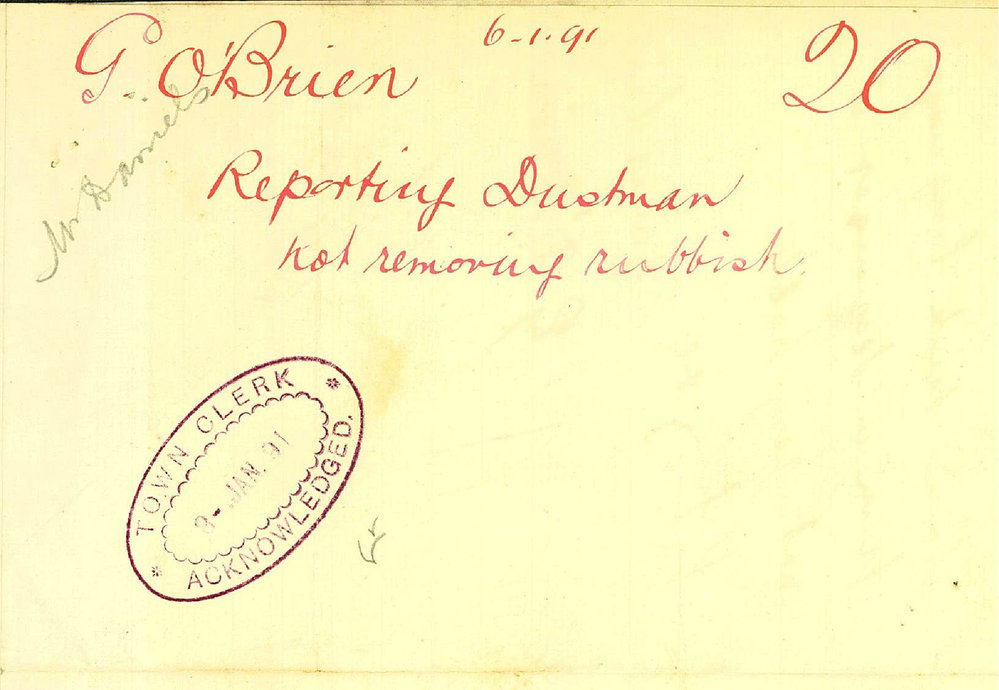 6-1.91
G. O'Brien
20
Mr Daniels
Reporting Dustman
not removing rubbish.
TOWN CLERK
JAN. 91
ACKNOWLEDGED.